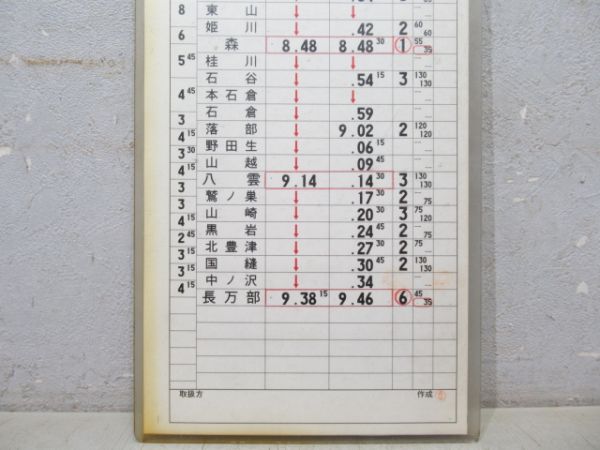 8 東山 ↓ ↓
姫川 ↓ .42 2 60 60
6
森 8.48 8.48 30 1 55 35
5 45
桂川 ↓ ↓
石谷 ↓ .54 15 3 130 130
4 45
本石倉 ↓ ↓
石倉 ↓ .59
3
落部 ↓ 9.02 2 120 120
4
野田生 ↓ .06 15
3 30
山越 ↓ .09 45
4 15
八雲 9.14 .14 30 3 130 130
3
鷲ノ巣 ↓ .17 30 2 75
3
山崎 ↓ .20 30 3 75 120
4 15
黒岩 ↓ .24 45 2 75
2 45
北豊津 ↓ .27 30 2 75
3 15
国縫 ↓ .30 45 2 130 130
3 15
中ノ沢 ↓ .34
4 15
長万部 9.38 15 9.46 6 45 35
取扱方 作成